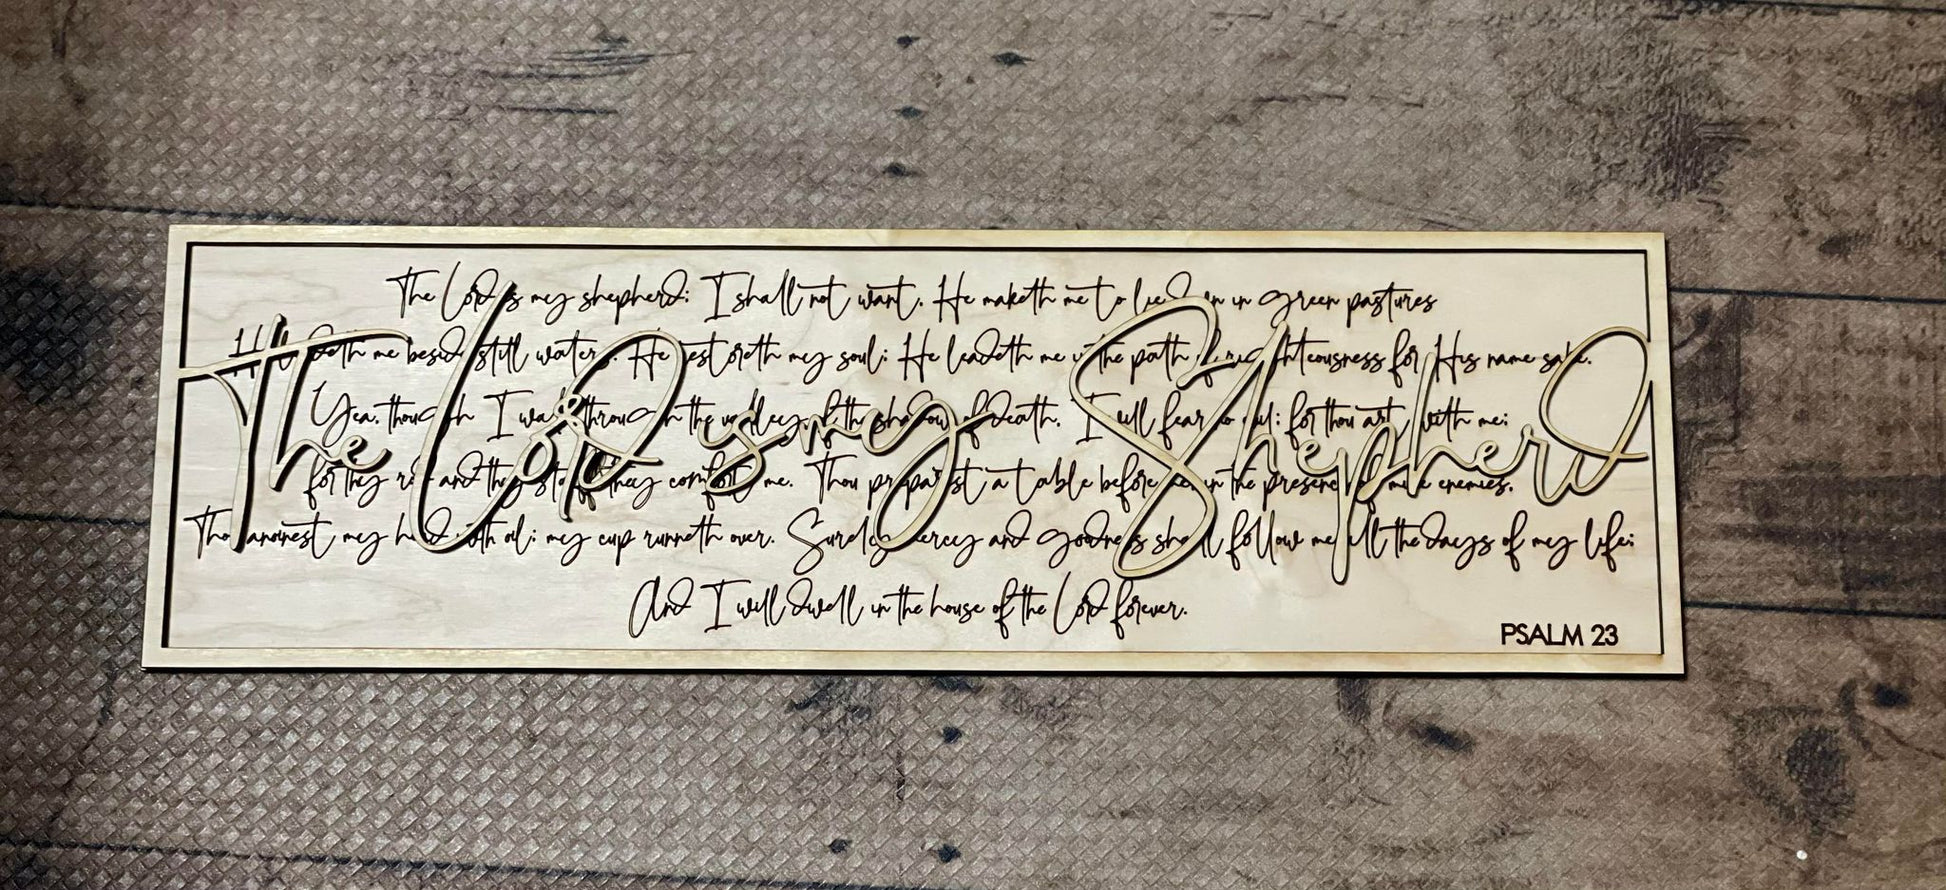 The Lord is my shepherd; I shall not want. He maketh me to lie down in green pastures
He leadeth me beside still waters. He restoreth my soul; He leadeth me in the path of righteousness for His name sake.
Yea, though I walk through the valley of the shadow of death, I will fear no evil; for thou art with me;
for thy rod and thy staff they comfort me. Thou preparest a table before me in the presence of mine enemies.
Thou anoinest my head with oil; my cup runneth over. Surely mercy and goodness shall follow me all the days of my life;
And I will dwell in the house of the Lord forever.
The Lord is my Shepherd
PSALM 23